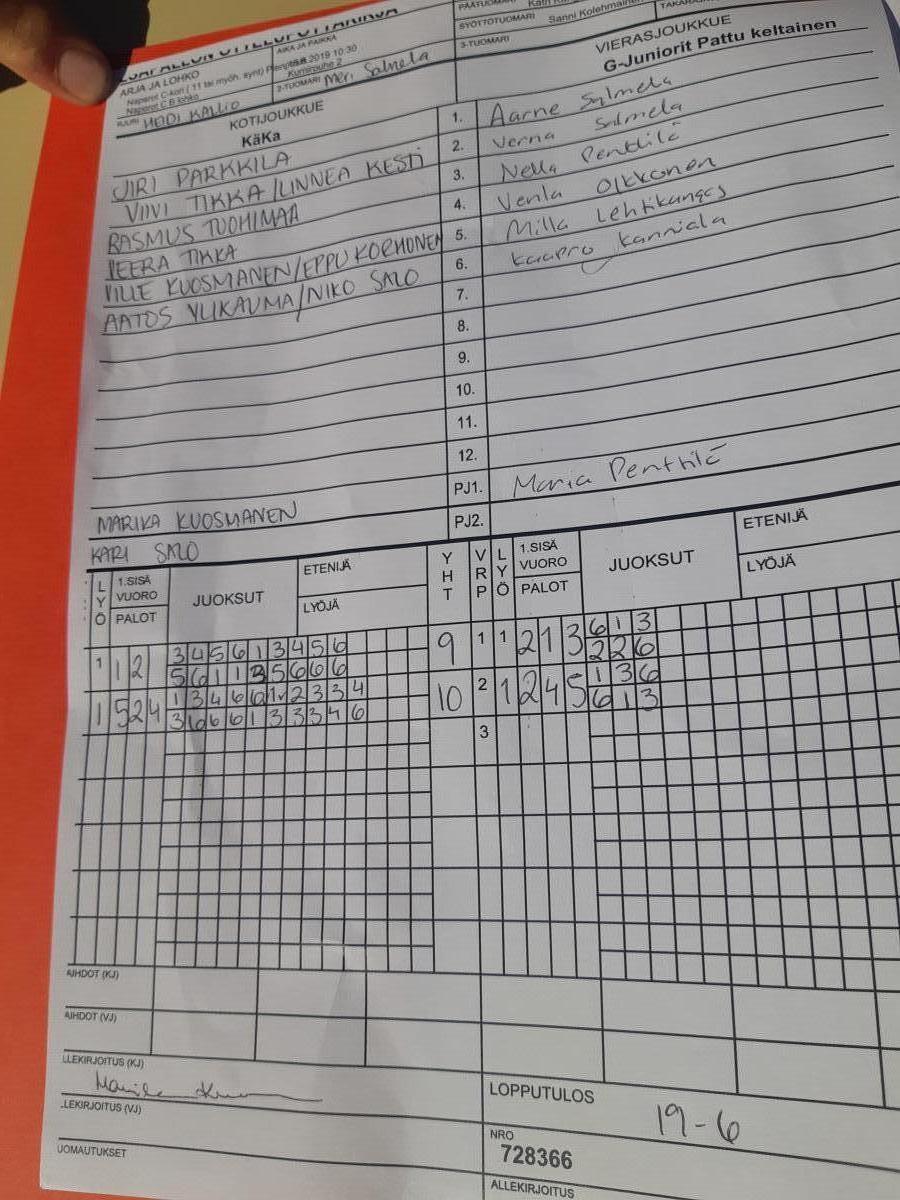 PÄÄTUOMARI
SYÖTTÖTUOMARI Sanni Kolehmainen
3-TUOMARI
AIKA JA PAIKKA
2019 10:30
2-TUOMARI Meri Salmela
ARJA JA LOHKO
Naperot C-kori ( 11 tai myöh. synt)
Naperot C B lohko
HEIDI KALLIO
KOTIJOUKKUE
KäKa
VIERASJOUKKUE
G-Juniorit Pattu keltainen
JIRI PARKKILA 1. Aarne Salmela
VIIVI TIKKA/LINNEA KESTI 2. Verna Salmela
RASMUS TUOHIMAA 3. Nella Penttilä
VEERA TIKKA 4. Venla Olkkonen
VILLE KUOSMANEN/EPPU KORHONEN 5. Milla Lehtikangas
AATOS YLIKAUMA/NIKO SALO 6. Kaapro Kanniala
7.
8.
9.
10.
11.
12.
MARIKA KUOSMANEN PJ1. Maria Penttilä
KARI SALO PJ2.
LYÖ 1.SISÄ VUORO PALOT JUOKSUT ETENIJÄ LYÖJÄ YHT VRP LYÖ 1.SISÄ VUORO PALOT JUOKSUT ETENIJÄ LYÖJÄ
3 4 5 6 1 3 4 5 6 6 1 3
1 1 2 9 1 1 2 1 3
5 6 1 1 3 5 6 6 6 2 2 6
1 3 4 6 6 1 2 3 3 4 1 3 6
1 5 2 4 10 2 1 2 4 5
3 6 6 6 1 3 3 3 4 6 6 1 3
3
AIHDOT (KJ)
AIHDOT (VJ)
LLEKIRJOITUS (KJ)
LLEKIRJOITUS (VJ)
UOMAUTUKSET
LOPPUTULOS
19-6
NRO
728366
ALLEKIRJOITUS